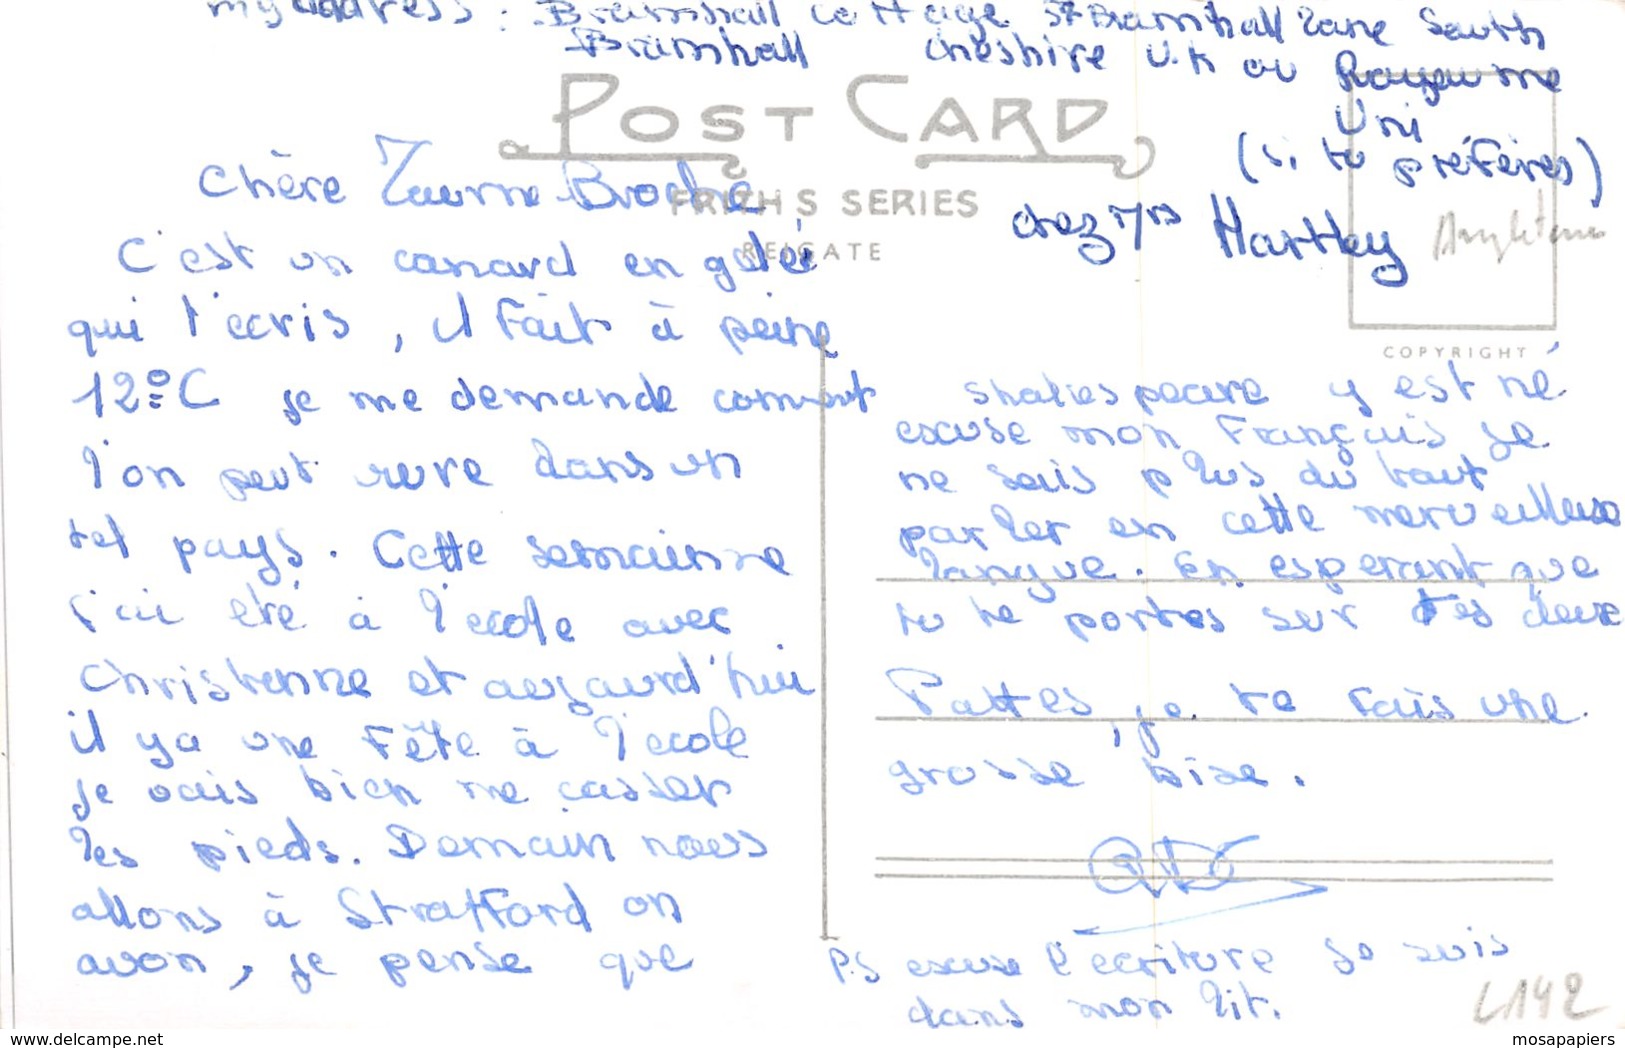 my address : Bramhall Cottage 57 Bramhall Lane South
Bramhall Cheshire U.K ou Royaume
Uni
(si tu préfères)
chez Mrs Hartley
Angleterre
POST CARD
FRITH'S SERIES
REIGATE
COPYRIGHT
Chère Broche,
C'est un canard en gelée
qui t'écris, il fait à peine
12°C je me demande comment
l'on peut vivre dans un
tel pays. Cette semainne
j'ai été à l'école avec
Christenne et aujaurd'hui
il ya une Fête à l'école
je vais bien me casser
les pieds. Demain nous
allons à Stratford on
avon, je pense que
Shakespeare y est né
excuse mon Français je
ne sais plus du tout
parler en cette merveilleuse
langue. En esperant que
tu te portes sur tes deux
Pattes, je te fais une
grosse bise.
P.S excuse l'ecriture je suis
dans mon lit.
L142
www.delcampe.net
mosapapiers